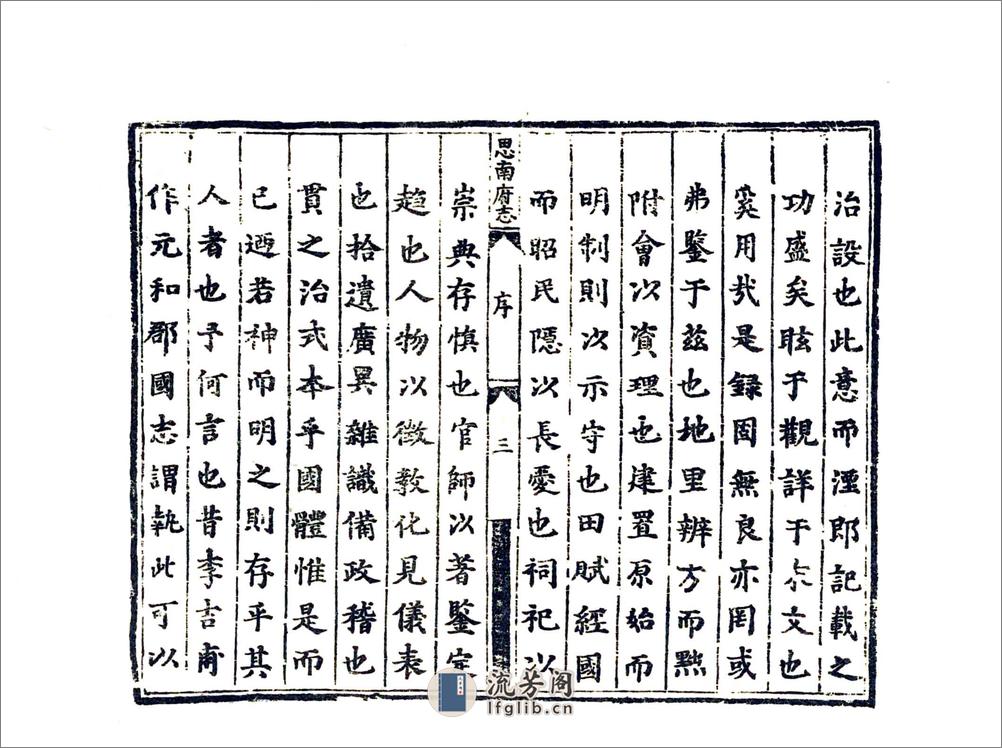 治設也此意而湮郎記載之
功盛矣眩于觀詳于文也
奚用㢤是録固無良亦罔或
弗鑒于兹也地里辨方而㸃
附會以資理也建置原始而
明制則以示守也田賦經國
而昭民隱以長愛也祠祀以
思南府志
序
三
崇典存慎也官師以著鑒定
趋也人物以徵教化見儀表
也拾遺廣異雜識備政稽也
貫之治式本乎國體惟是而
已迺若神而明之則存乎其
人者也予何言也昔李吉甫
作元和郡國志謂執此可以
流芳阁
lfglib.cn